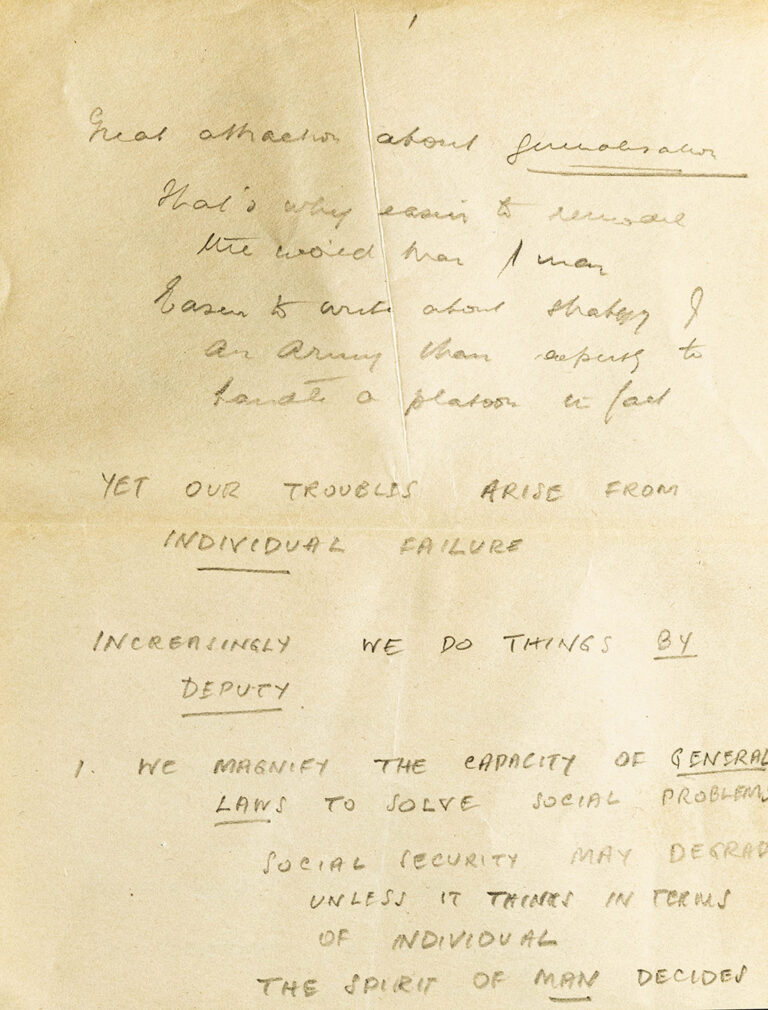 Great attraction about generalisation
That's why easier to remodel
the world than 1 man
Easier to write about strategy of
an Army than expertly to
handle a platoon in fact
YET OUR TROUBLES ARISE FROM
INDIVIDUAL FAILURE
INCREASINGLY WE DO THINGS BY
DEPUTY.
1. WE MAGNIFY THE CAPACITY OF GENERAL
LAWS TO SOLVE SOCIAL PROBLEMS
SOCIAL SECURITY MAY DEGRAD
UNLESS IT THINKS IN TERMS
OF INDIVIDUAL
THE SPIRIT OF MAN DECIDES